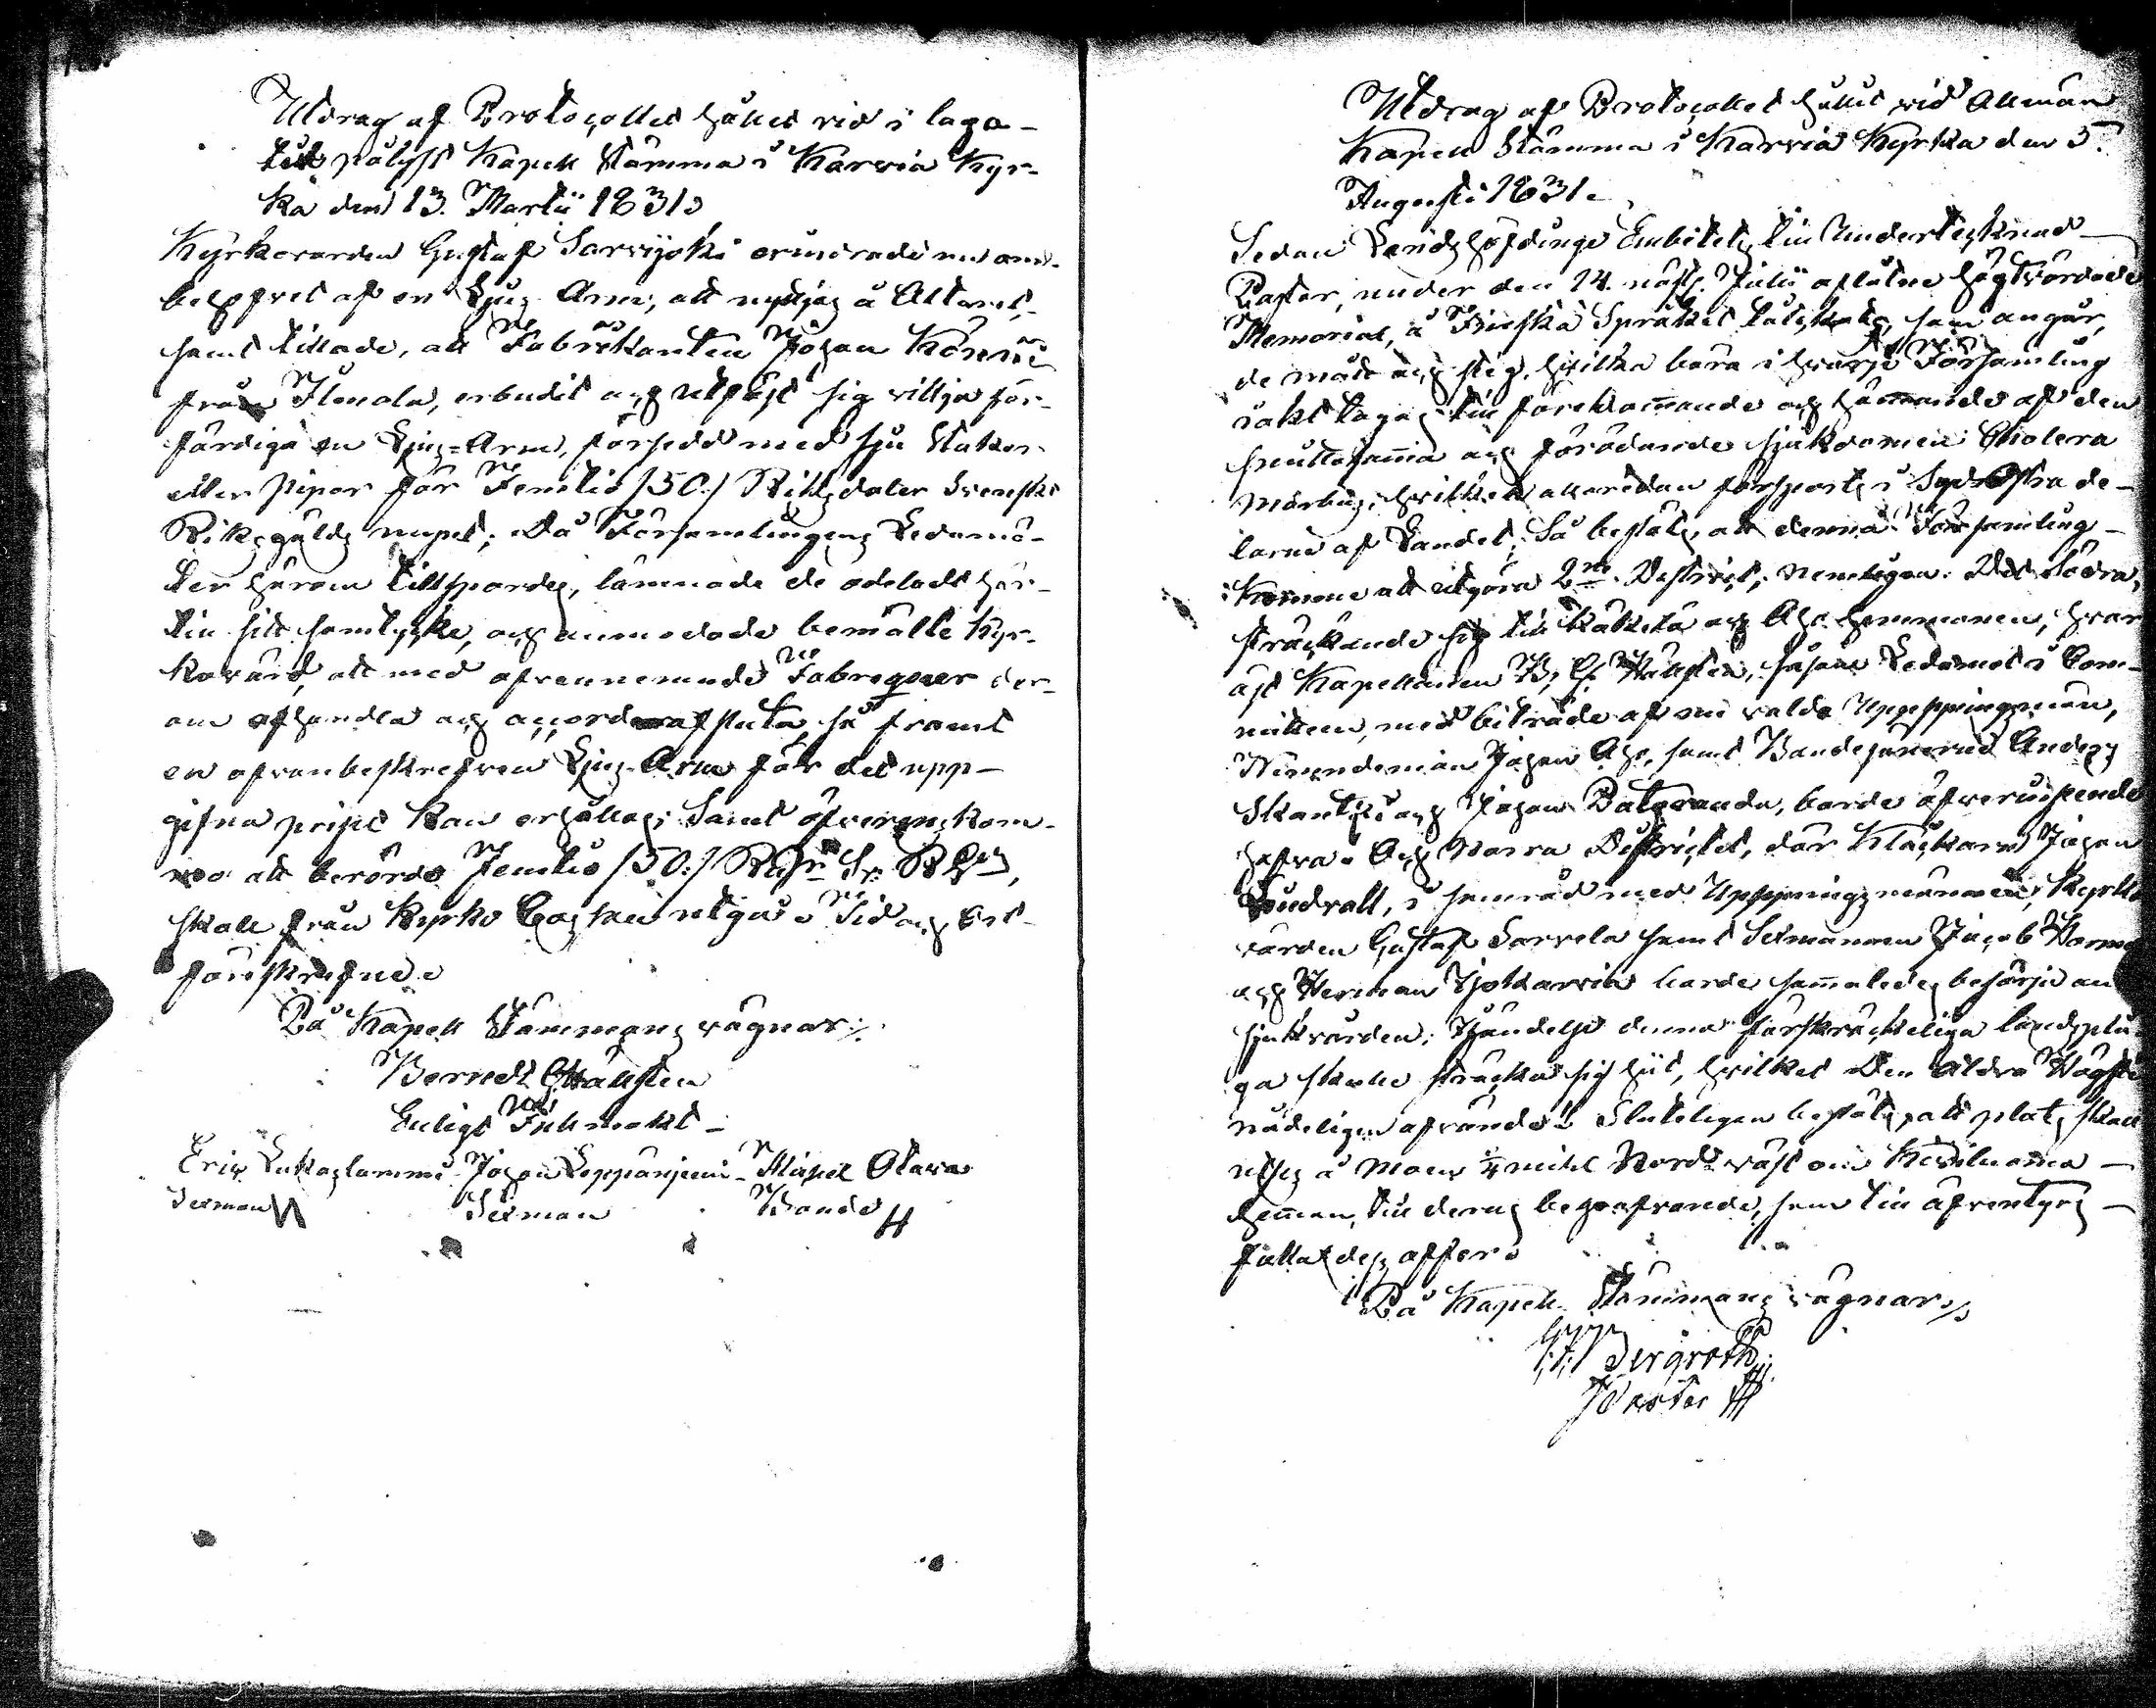 Utdrag af Protocollet hållet vid i laga
tid pålyst Kapell Stämma i Karvia Kyr-
ka den 13. Martii 1831.
Kyrkovärden Gustaf Sarvijoki erindrade nu om
behofvet af en Ljus-Arm, att nyttjas å Altaret,
samt tillade, att Fabrikanten Johan Könni
från Ilmola, erbudit och utfäst sig villja för-
färdiga en Ljus-Arm, försedd med sju Stakar
eller pipor för Femtio /50:/ Riksdaler Svenskt
Riksgälds mynt; Då Församlingens Ledamö-
ter härom tillspordes, lämnade de odeladt här-
till sitt samtycke, och anmodade bemälte Kyr-
kovärd, att med ofvannemnde Fabriqueur der-
om afhandla och accord afsluta, så framt
en ofvanbeskrefven Ljus-Arm för det upp-
gifna priset kan erhållas; Samt öfverenskom-
mo att berörde Femtio /50:/ Rdr Sv: RGds,
skall från Kyrko Cassan utgå. Tid och Ort
föreskrefne.
På Kapell Stämmans vägnar
Berndt Hällsten
Enligt Fullmakt
Eric Luttaslammi Johan Leppänjemi Michel Olava
Sexman Sexman Bonde
Utdrag af Protocollet hållet vid Allmän
Kapell Stämma i Karvia Kyrka den 3.
Augusti 1831.
Sedan Landshöfdinge Embetets till Undertecknad
Pastor, under den 14. näst. Julii aflåtne Högtvördade
Memorial, å Finska Språket tolkats, som angår,
de mått och steg, hvilka böra i hvarje Församling
vaktagas till förekommande och hämmande af den
smittosamma och förödande sjukdomen Cholera
morbus, hvilken allaredan försports i Sydöstra de-
larne af Landet; Så beslöts, att denna Församling
komme att utgöra 2ne District; nemligen: Det Södra,
sträckande sig till Käkelä och Aho hemmanen, hvar-
åst Kapellanen B. G. Hällsten, såsom Ledamot i Com-
mitteen, med biträde af nu valde Uppsyningsmän,
Nämndeman Johan Aho, samt Bondesönerne Anders
Skantz och Johan Patoranda, borde öfverinseende
hafva. Och Norra Districtet, der Klåckaren Johan
Lundvall, i samråd med Uppsyningsmännen, Kyrko-
värden Gustaf Sarvela samt Sexmannen Jacob
och Herman Ojokarvia borde sammaledes besörja om
sjukvården; Händelse denna förskräckeliga landsplå-
ga skulle sträcka sig hit, hvilket Den Aldra Högste
nådeligen afvände! Slutligen beslöts, att plats skall
utses å moen ¼ mihl Nordväst om
hemman, till deras begrafvande, som till äfventyrs
falla dess offer.
På Kapell Stämmans vägnar
Bergroth
Pastor